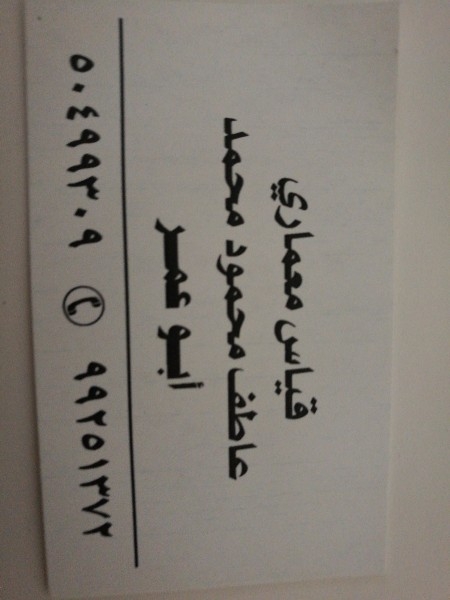 قياس معماري
عاطف محمود محمد
أبو عمر
٥٠٤٩٩٣٠٩ ✆ ٩٩٢٥١٣٧٢